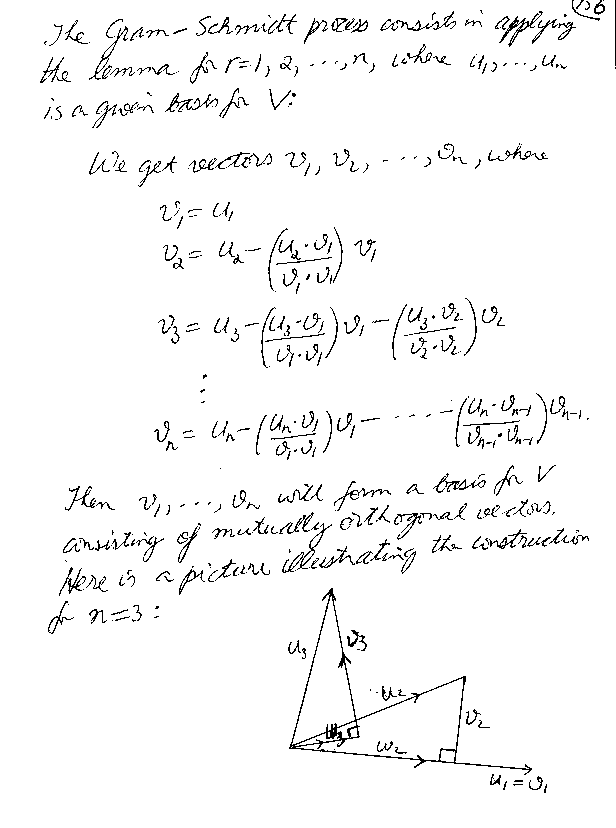 136
The Gram-Schmidt process consists in applying
the lemma for r=1, 2, ..., n, where u₁, ..., uₙ
is a given basis for V:
We get vectors v₁, v₂, ..., vₙ, where
v₁ = u₁
v₂ = u₂ - (u₂·v₁ / v₁·v₁) v₁
v₃ = u₃ - (u₃·v₁ / v₁·v₁) v₁ - (u₃·v₂ / v₂·v₂) v₂
⋮
vₙ = uₙ - (uₙ·v₁ / v₁·v₁) v₁ - .... - (uₙ·vₙ₋₁ / vₙ₋₁·vₙ₋₁) vₙ₋₁.
Then v₁, ..., vₙ will form a basis for V
consisting of mutually orthogonal vectors.
Here is a picture illustrating the construction
for n=3:
u₃
v₃
u₂
v₂
w₃
w₂
u₁=v₁